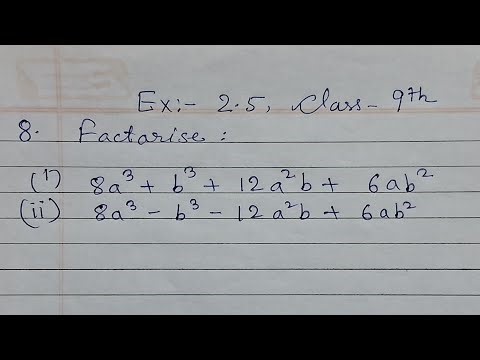 Ex:- 2.5, Class- 9th
8. Factarise :
(1) 8a³ + b³ + 12a²b + 6ab²
(ii) 8a³ - b³ - 12a²b + 6ab²